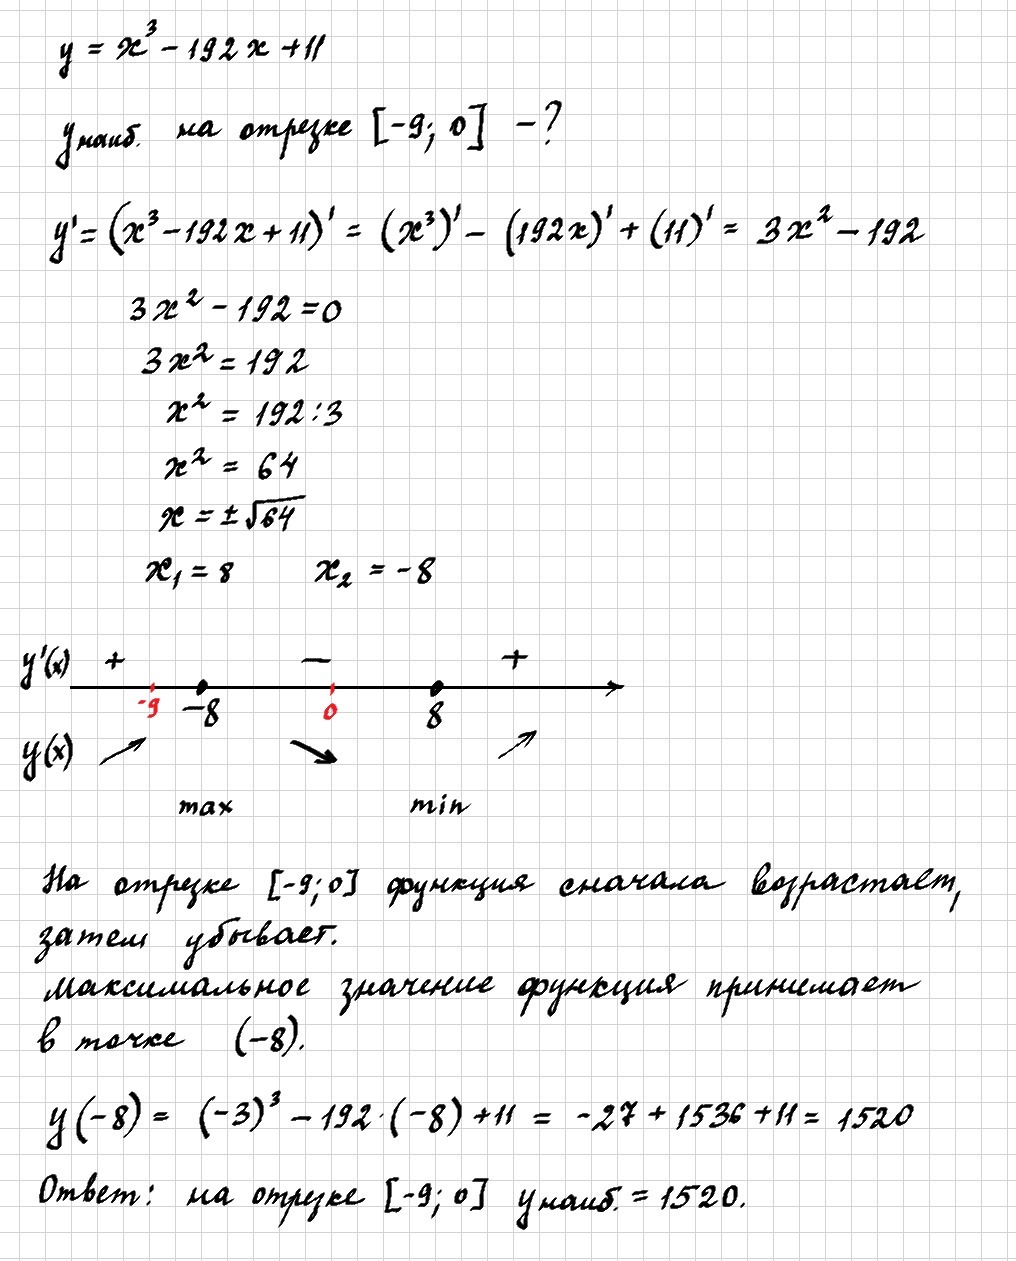 y = x³ - 192x + 11
yнаиб. на отрезке [-9; 0] - ?
y' = (x³ - 192x + 11)' = (x³)' - (192x)' + (11)' = 3x² - 192
3x² - 192 = 0
3x² = 192
x² = 192 : 3
x² = 64
x = ±√64
x₁ = 8 x₂ = -8
y'(x) + - +
-9 -8 0 8
y(x)
max min
На отрезке [-9; 0] функция сначала возрастает,
затем убывает.
Максимальное значение функция принимает
в точке (-8).
y(-8) = (-3)³ - 192·(-8) + 11 = -27 + 1536 + 11 = 1520
Ответ: на отрезке [-9; 0] yнаиб. = 1520.